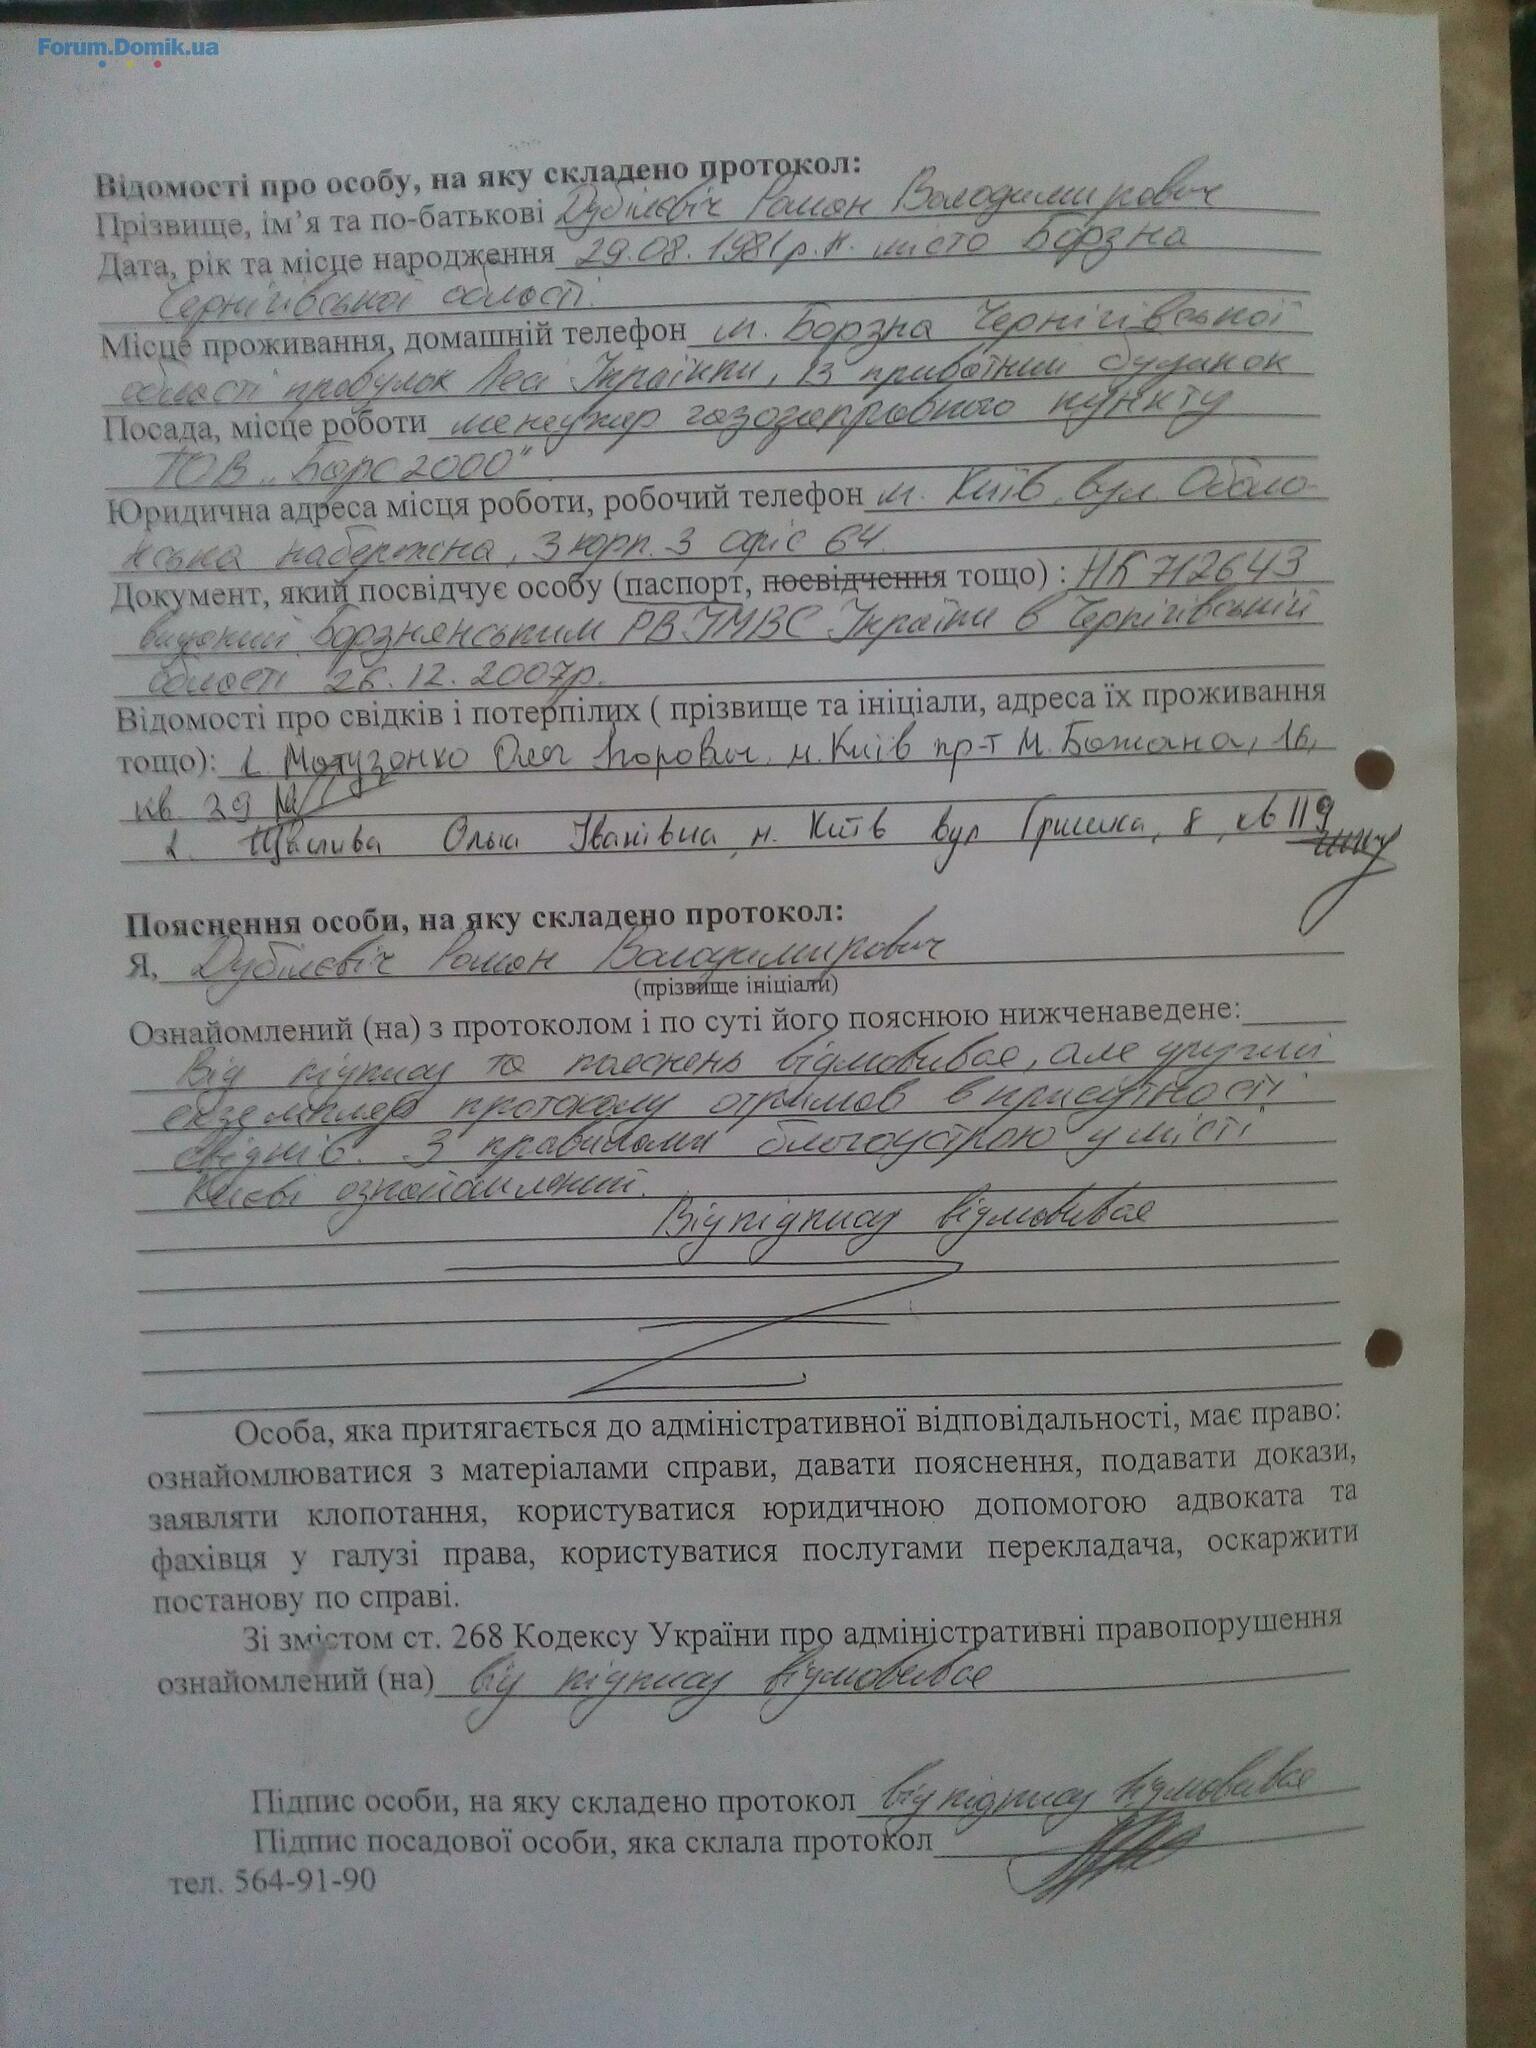 Forum.Domik.ua
Відомості про особу, на яку складено протокол:
Прізвище, ім’я та по-батькові Дубілєвіч Роман Володимирович
Дата, рік та місце народження 29.08.1981р.н. місто Борзна
Чернігівської області.
Місце проживання, домашній телефон м. Борзна Чернігівської
області провулок Лесі Українки, 13 приватний будинок
Посада, місце роботи менеджер газозаправного пункту
ТОВ „Барс 2000"
Юридична адреса місця роботи, робочий телефон м. Київ вул. Оболо-
нська набережна, 3 корп. 3 офіс 64.
Документ, який посвідчує особу (паспорт, посвідчення тощо) : НК 712643
виданий Борзнянським РВ УМВС України в Чернігівській
області 26.12.2007р.
Відомості про свідків і потерпілих ( прізвище та ініціали, адреса їх проживання
тощо): 1. Матузонко Олег Ігорович. м. Київ пр-т М. Бажана, 16,
кв. 29
2. Щаслива Ольга Іванівна, м. Київ вул Гришка, 8, кв 119
Пояснення особи, на яку складено протокол:
Я, Дубілєвіч Роман Володимирович
(прізвище ініціали)
Ознайомлений (на) з протоколом і по суті його пояснюю нижченаведене:
Від підпису та пояснень відмовився, але другий
екземпляр протоколу отримав в присутності
свідків. З правилами благоустрою у місті
Києві ознайомлений.
Від підпису відмовився
Особа, яка притягається до адміністративної відповідальності, має право:
ознайомлюватися з матеріалами справи, давати пояснення, подавати докази,
заявляти клопотання, користуватися юридичною допомогою адвоката та
фахівця у галузі права, користуватися послугами перекладача, оскаржити
постанову по справі.
Зі змістом ст. 268 Кодексу України про адміністративні правопорушення
ознайомлений (на) від підпису відмовився
Підпис особи, на яку складено протокол від підпису відмовився
Підпис посадової особи, яка склала протокол
тел. 564-91-90